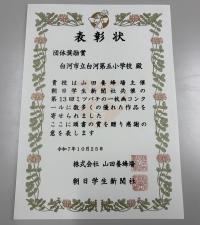 表彰状
団体奨励賞
白河市立白河第五小学校 殿
貴校は山田養蜂場主催
朝日学生新聞社共催の
第13回ミツバチの一枚画コンク
ールに数多くの優れた作品を
寄せられました
ここに頭書の賞を贈り感謝の
意を表します
令和7年10月25日
株式会社 山田養蜂場
朝日学生新聞社